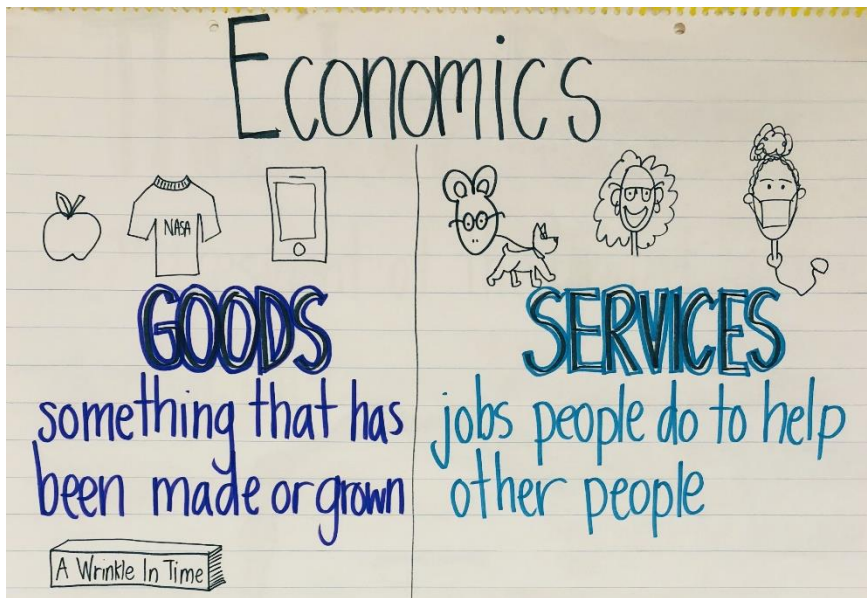 Economics
NASA
GOODS
something that has
been made or grown
A Wrinkle In Time
SERVICES
jobs people do to help
other people